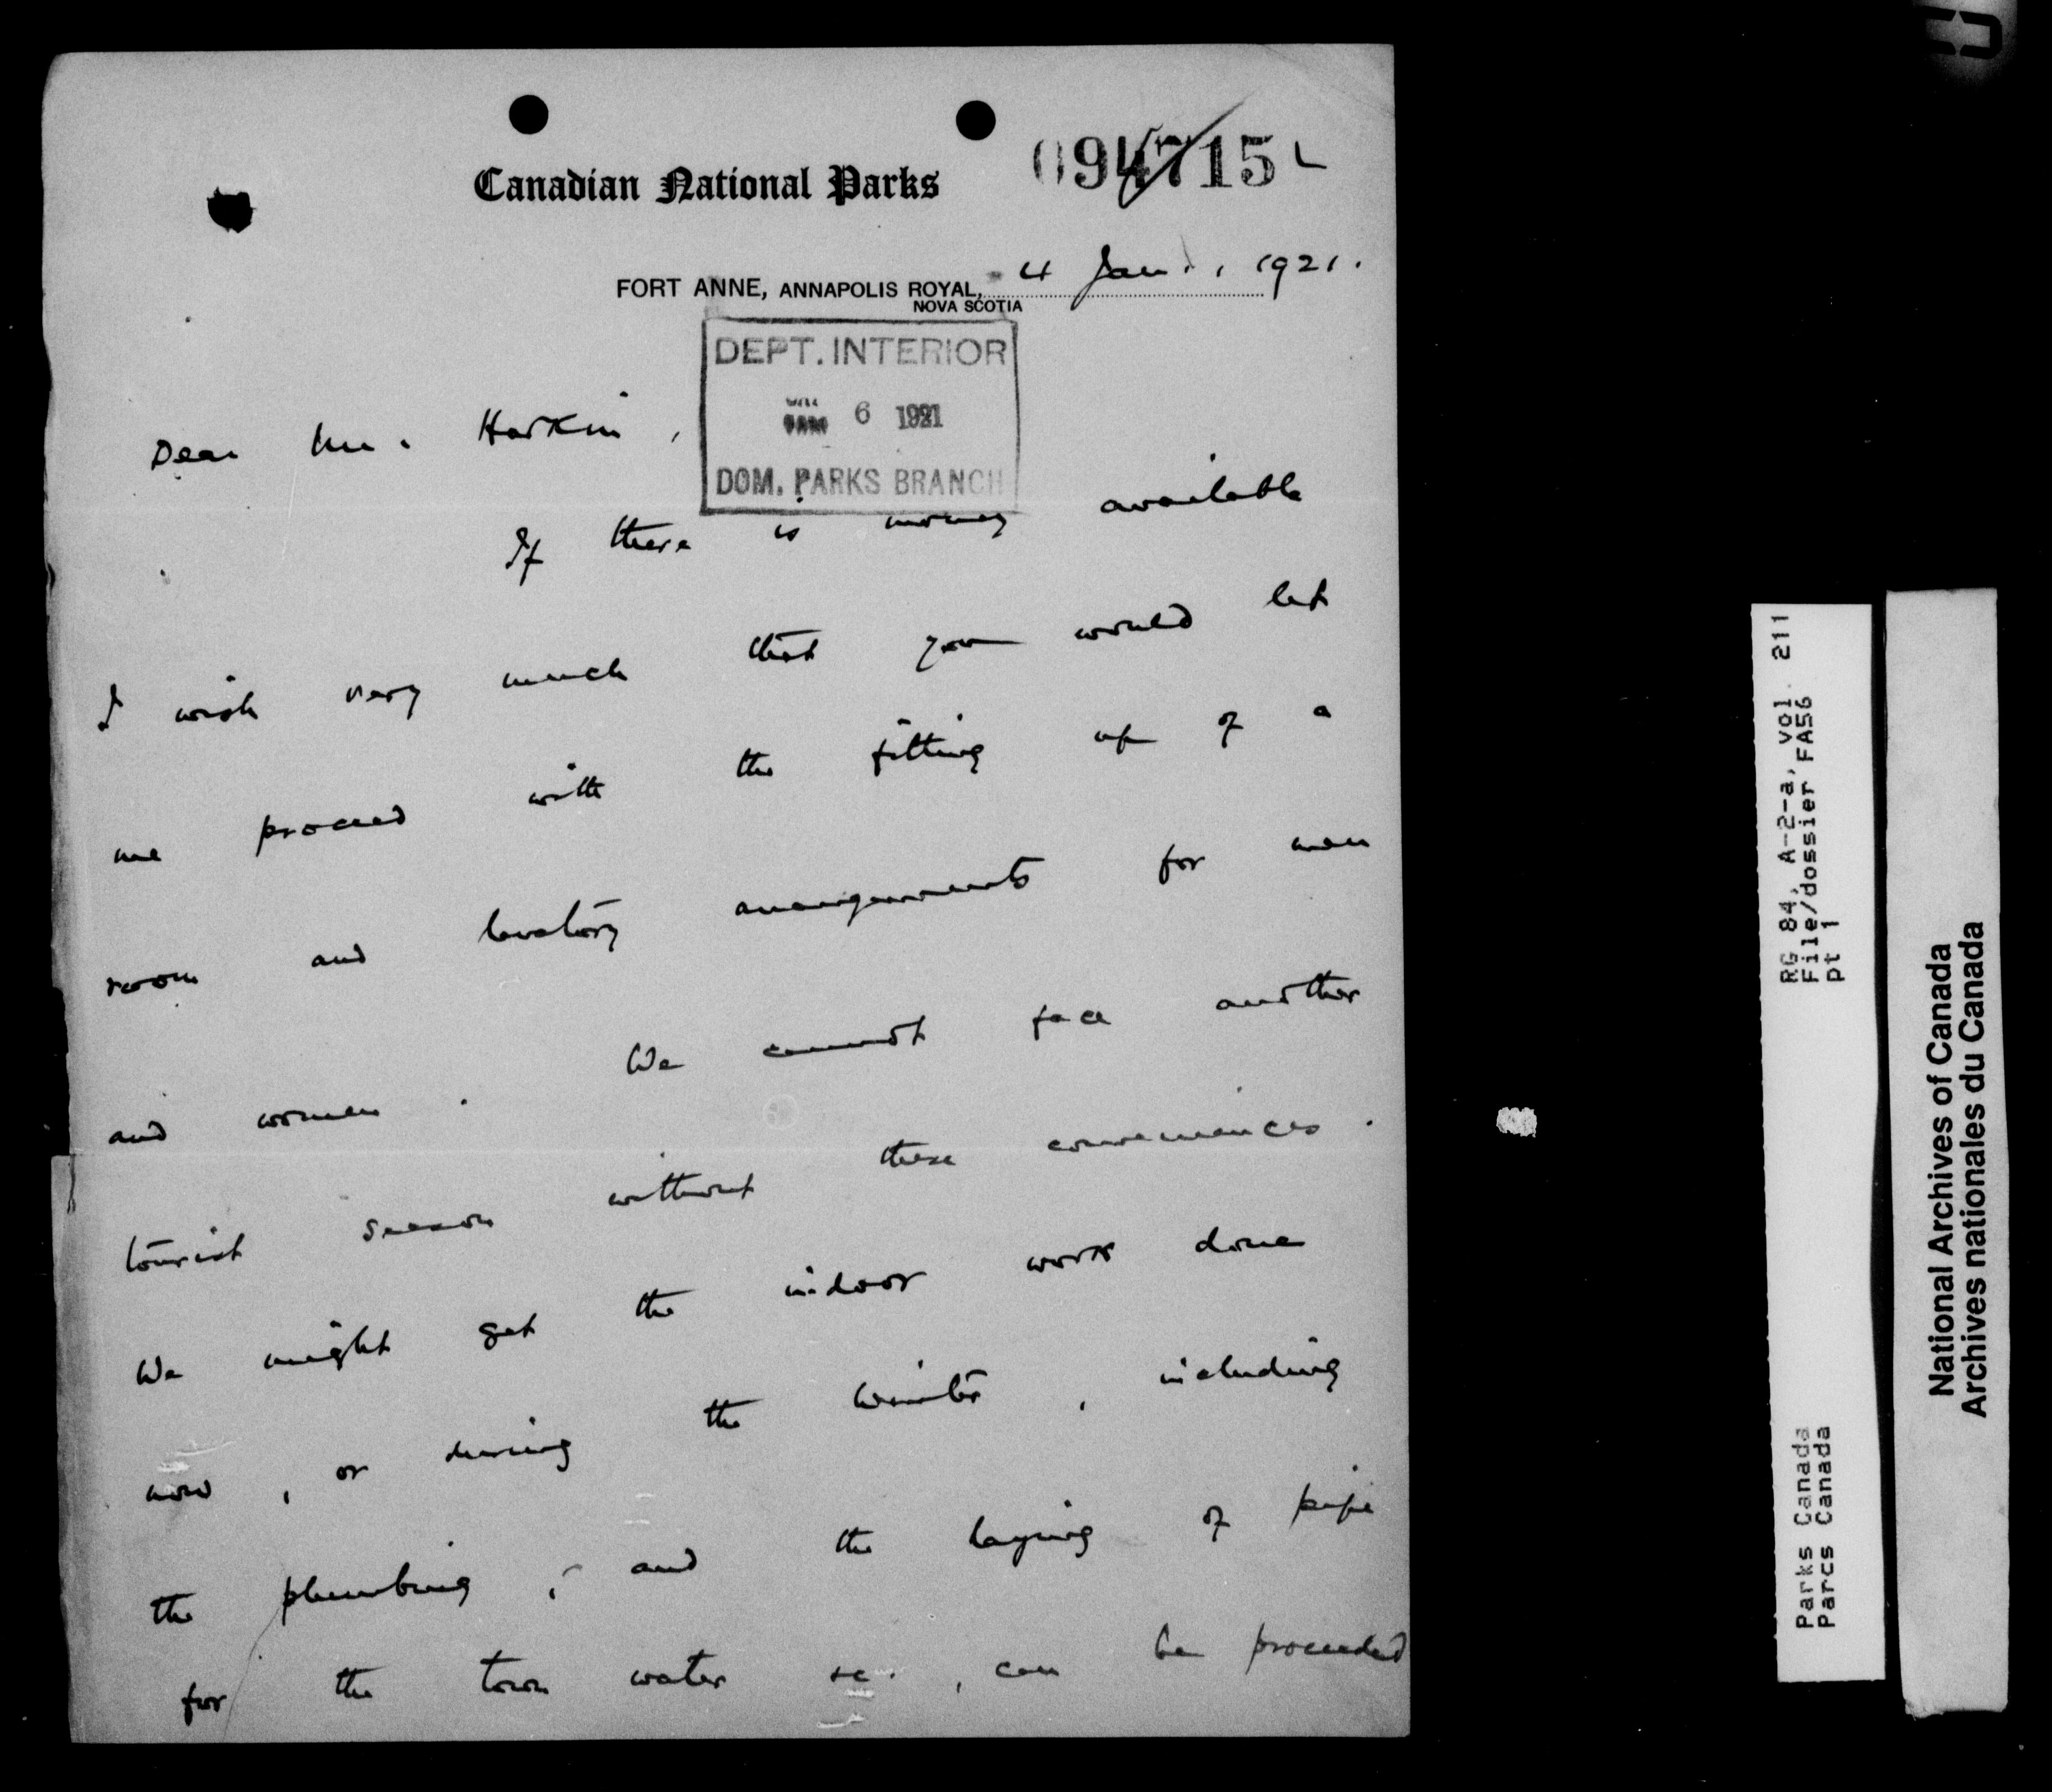 094715 L
Canadian National Parks
FORT ANNE, ANNAPOLIS ROYAL, 4 Jan., 1921.
NOVA SCOTIA
DEPT. INTERIOR
6 1921
DOM. PARKS BRANCH
Dear Mr. Harkin,
If there is money available
I wish very much that you would let
me proceed with the fitting up of a
room and lavatory arrangements for men
and women. We cannot face another
tourist season without these conveniences.
We might get the indoor work done
now, or during the winter, including
the plumbing, and the laying of pipe
for the town water &c., can be proceeded
RG 84, A-2-a, vol. 211
File/dossier FA56
pt 1
Parks Canada
Parcs Canada
National Archives of Canada
Archives nationales du Canada